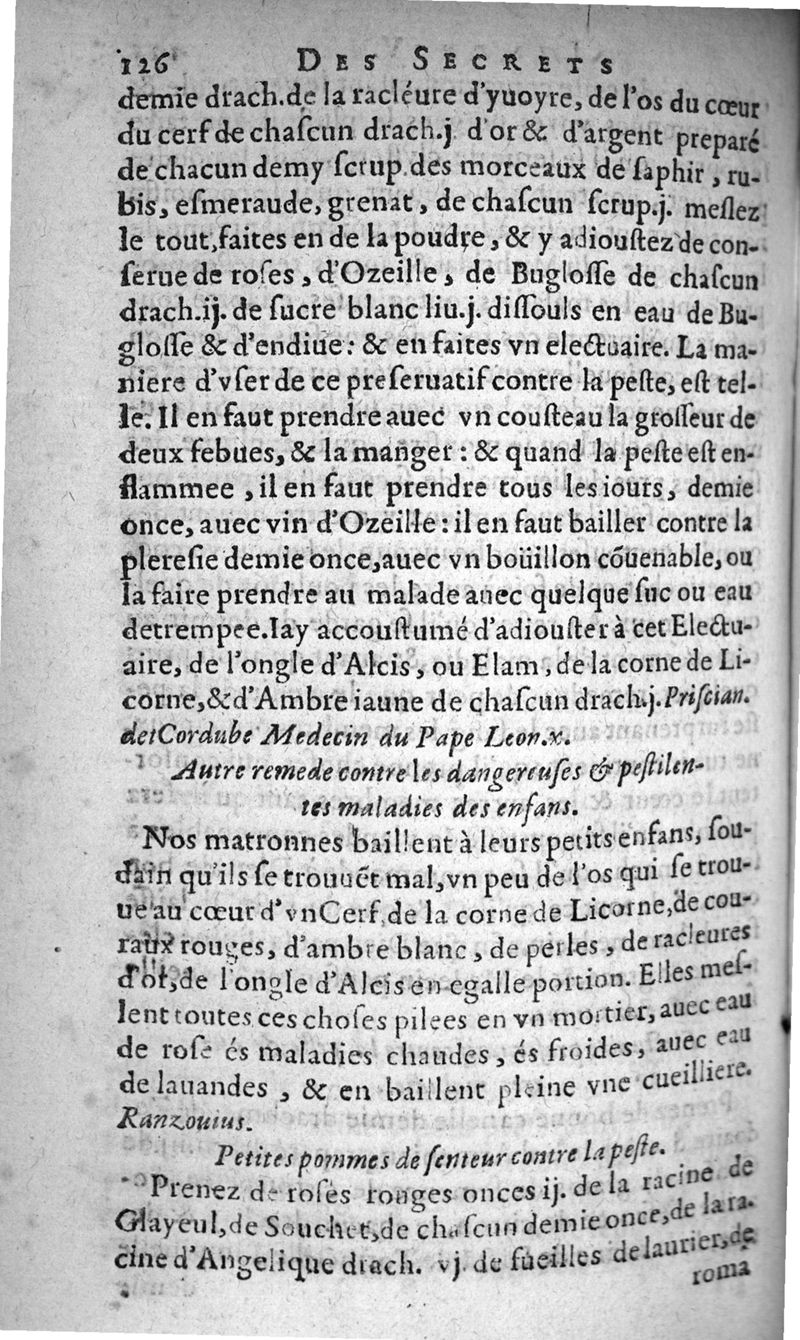 126 DES SECRETS
demie drach.de la racleure d'yuoyre, de l'os du cœur
du cerf de chaſcun drach.j d'or & d'argent preparé
de chacun demy ſcrup.des morceaux de ſaphir, ru-
bis, eſmeraude, grenat, de chaſcun ſcrup.j. meſlez
le tout,faites en de la poudre, & y adiouſtez de con-
ſerue de roſes, d'Ozeille, de Bugloſſe de chaſcun
drach.ij. de ſucre blanc liu.j. diſſouls en eau de Bu-
gloſſe & d'endiue: & en faites vn electuaire. La ma-
niere d'vſer de ce preſeruatif contre la peſte, eſt tel-
le. Il en faut prendre auec vn couſteau la groſſeur de
deux febues, & la manger : & quand la peſte eſt en-
flammee, il en faut prendre tous les iours, demie
once, auec vin d'Ozeille: il en faut bailler contre la
plereſie demie once,auec vn boüillon cõuenable, ou
la faire prendre au malade auec quelque ſuc ou eau
detrempee.Iay accouſtumé d'adiouſter à cet Electu-
aire, de l'ongle d'Alcis, ou Elam, de la corne de Li-
corne,&d'Ambre iaune de chaſcun drach.j.Priſcian.
detCordube Medecin du Pape Leon.x.
Autre remede contre les dangereuſes & peſtilen-
tes maladies des enfans.
Nos matronnes baillent à leurs petits enfans, ſou-
dain qu'ils ſe trouuẽt mal, vn peu de l'os qui ſe trou-
ue au cœur d'vn Cerf,de la corne de Licorne,de cou-
raux rouges, d'ambre blanc, de perles, de racleures
d'or,de l'ongle d'Alcis en egalle portion. Elles meſ-
lent toutes ces choſes pilees en vn mortier, auec eau
de roſe és maladies chaudes, és froides, auec eau
de lauandes, & en baillent pleine vne cueilliere.
Ranzouius.
Petites pommes de ſenteur contre la peſte.
Prenez de roſes rouges onces ij. de la racine de
Glayeul,de Souchet,de chaſcun demie once,de la ra-
cine d'Angelique drach. vj. de fueilles de laurier,de
romá